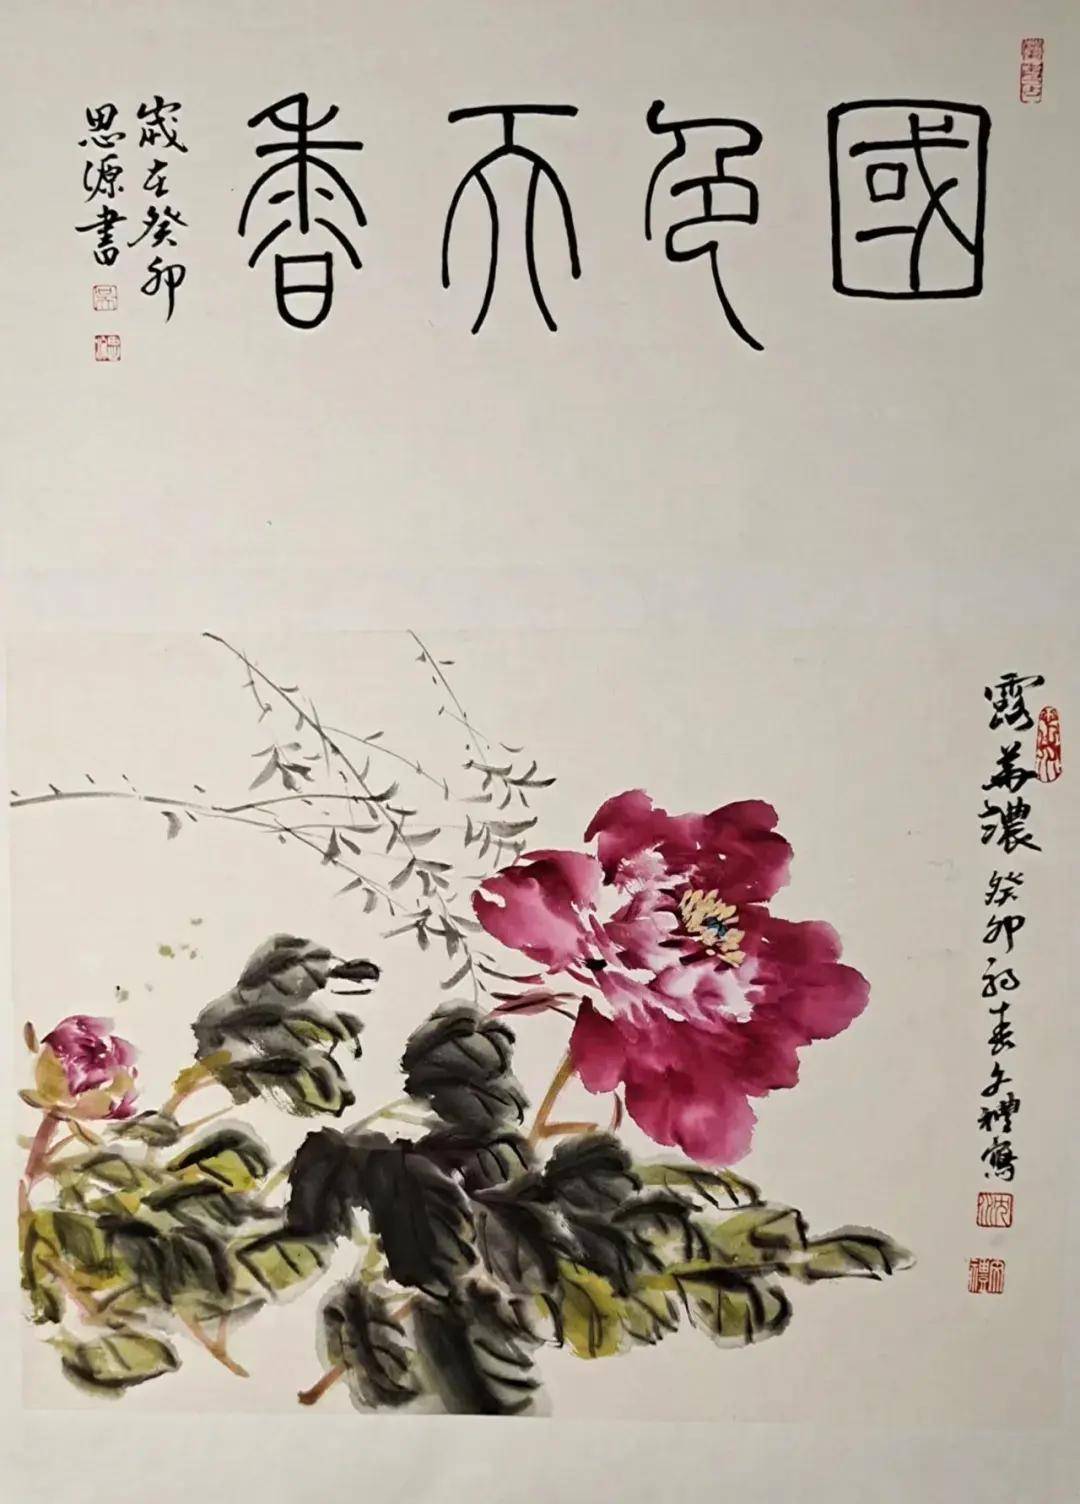 國色天香
歲在癸卯
思源書
露華濃 癸卯初春文禮寫
文禮